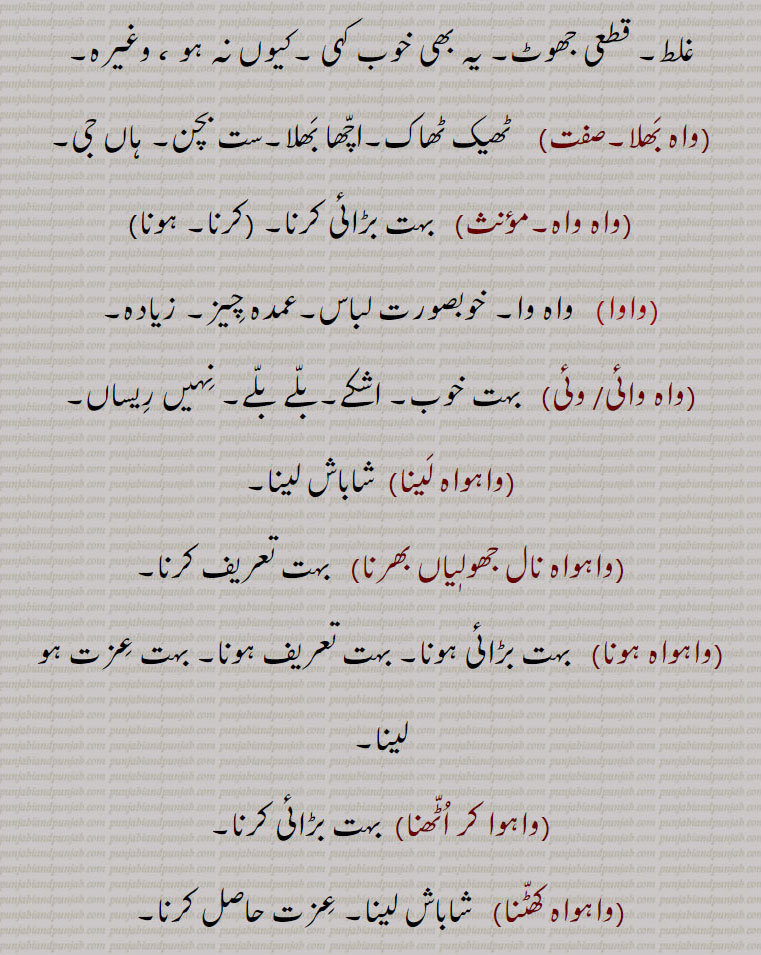 غلط۔ قطعی جھوٹ۔ یہ بھی خوب کہی ۔کیوں نہ ہو ، وغیرہ۔
(واہ بَھلا۔صفت) ٹھیک ٹھاک۔اچّھا بَھلا۔ست بچن۔ ہاں جی۔
(واہ واہ۔مؤنث) بہت بڑائی کرنا۔ (کرنا۔ ہونا)
(واوا) واہ وا۔ خوبصورت لباس۔عمدہ چِیز۔ زیادہ۔
(واہ وائی/ وئی) بہت خوب۔ اشکے۔بلّے بلّے۔ نِہیں رِیساں۔
(واہواہ لَینا) شاباش لینا۔
(واہواہ نال جھولیاں بھرنا) بہت تعریف کرنا۔
(واہواہ ہونا) بہت بڑائی ہونا۔ بہت تعریف ہونا۔ بہت عِزت ہو
لینا۔
(واہوا کر اُٹّھنا) بہت بڑائی کرنا۔
(واہواہ کھٹّنا) شاباش لینا۔ عِزت حاصل کرنا۔